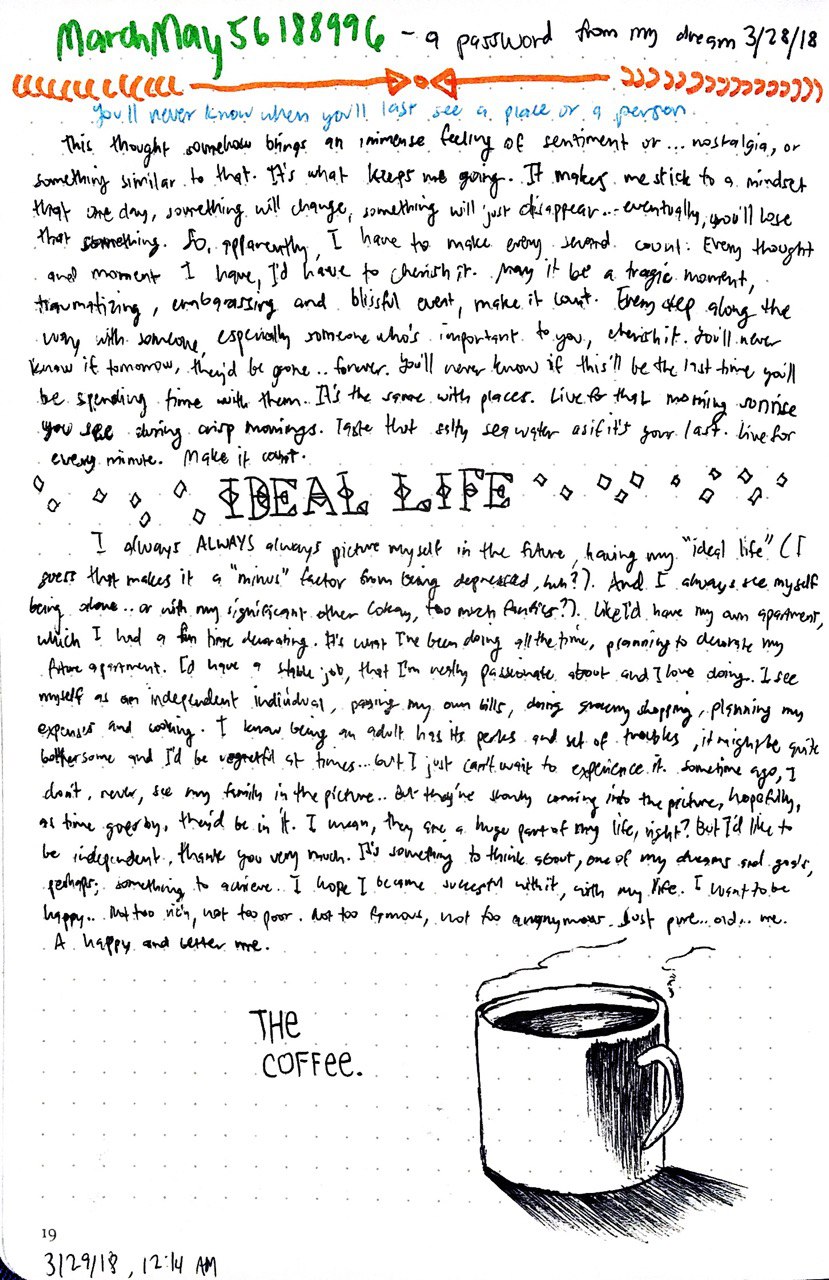 MarchMay56188996 - a password from my dream 3/28/18
You'll never know when you'll last see a place or a person.
This thought somehow brings an immense feeling of sentiment or... nostalgia, or
something similar to that. It's what keeps me going. It makes me stick to a mindset
that one day, something will change, something will just disappear... eventually, you'll lose
that something. So, apparently, I have to make every second count. Every thought
and moment I have, I'd have to cherish it. May it be a tragic moment,
traumatizing, embarassing and blissful event, make it count. Every step along the
way with someone, especially someone who's important to you, cherish it. You'll never
know if tomorrow, they'd be gone.. forever. You'll never know if this'll be the last time you'll
be spending time with them. It's the same with places. Live for that morning sunrise
you see during crisp mornings. Taste that salty sea water as if it's your last. Live for
every minute. Make it count.
IDEAL LIFE
I always ALWAYS always picture myself in the future, having my "ideal life" (I
guess that makes it a "minus" factor from being depressed, huh?). And I always see myself
being alone.. or with my significant other (okay, too much fantasies?). Like I'd have my own apartment,
which I had a fun time decorating. It's what I've been doing all the time, planning to decorate my
future apartment. I'd have a stable job, that I'm really passionate about and I love doing. I see
myself as an independent individual, paying my own bills, doing grocery shopping, planning my
expenses and cooking. I know being an adult has its perks and set of troubles, it might be quite
bothersome and I'd be regretful at times... but I just can't wait to experience it. Sometime ago, I
don't, never, see my family in the picture.. But they're slowly coming into the picture, hopefully,
as time goes by, they'd be in it. I mean, they are a huge part of my life, right? But I'd like to
be independent, thank you very much. It's something to think about, one of my dreams and goals,
perhaps; something to achieve. I hope I became sucessful with it, with my life. I want to be
happy.. Not too rich, not too poor. Not too famous, not too anonymous. Just pure... old... me.
A happy and better me.
THE
COFFEE.
19
3/29/18, 12:14 AM